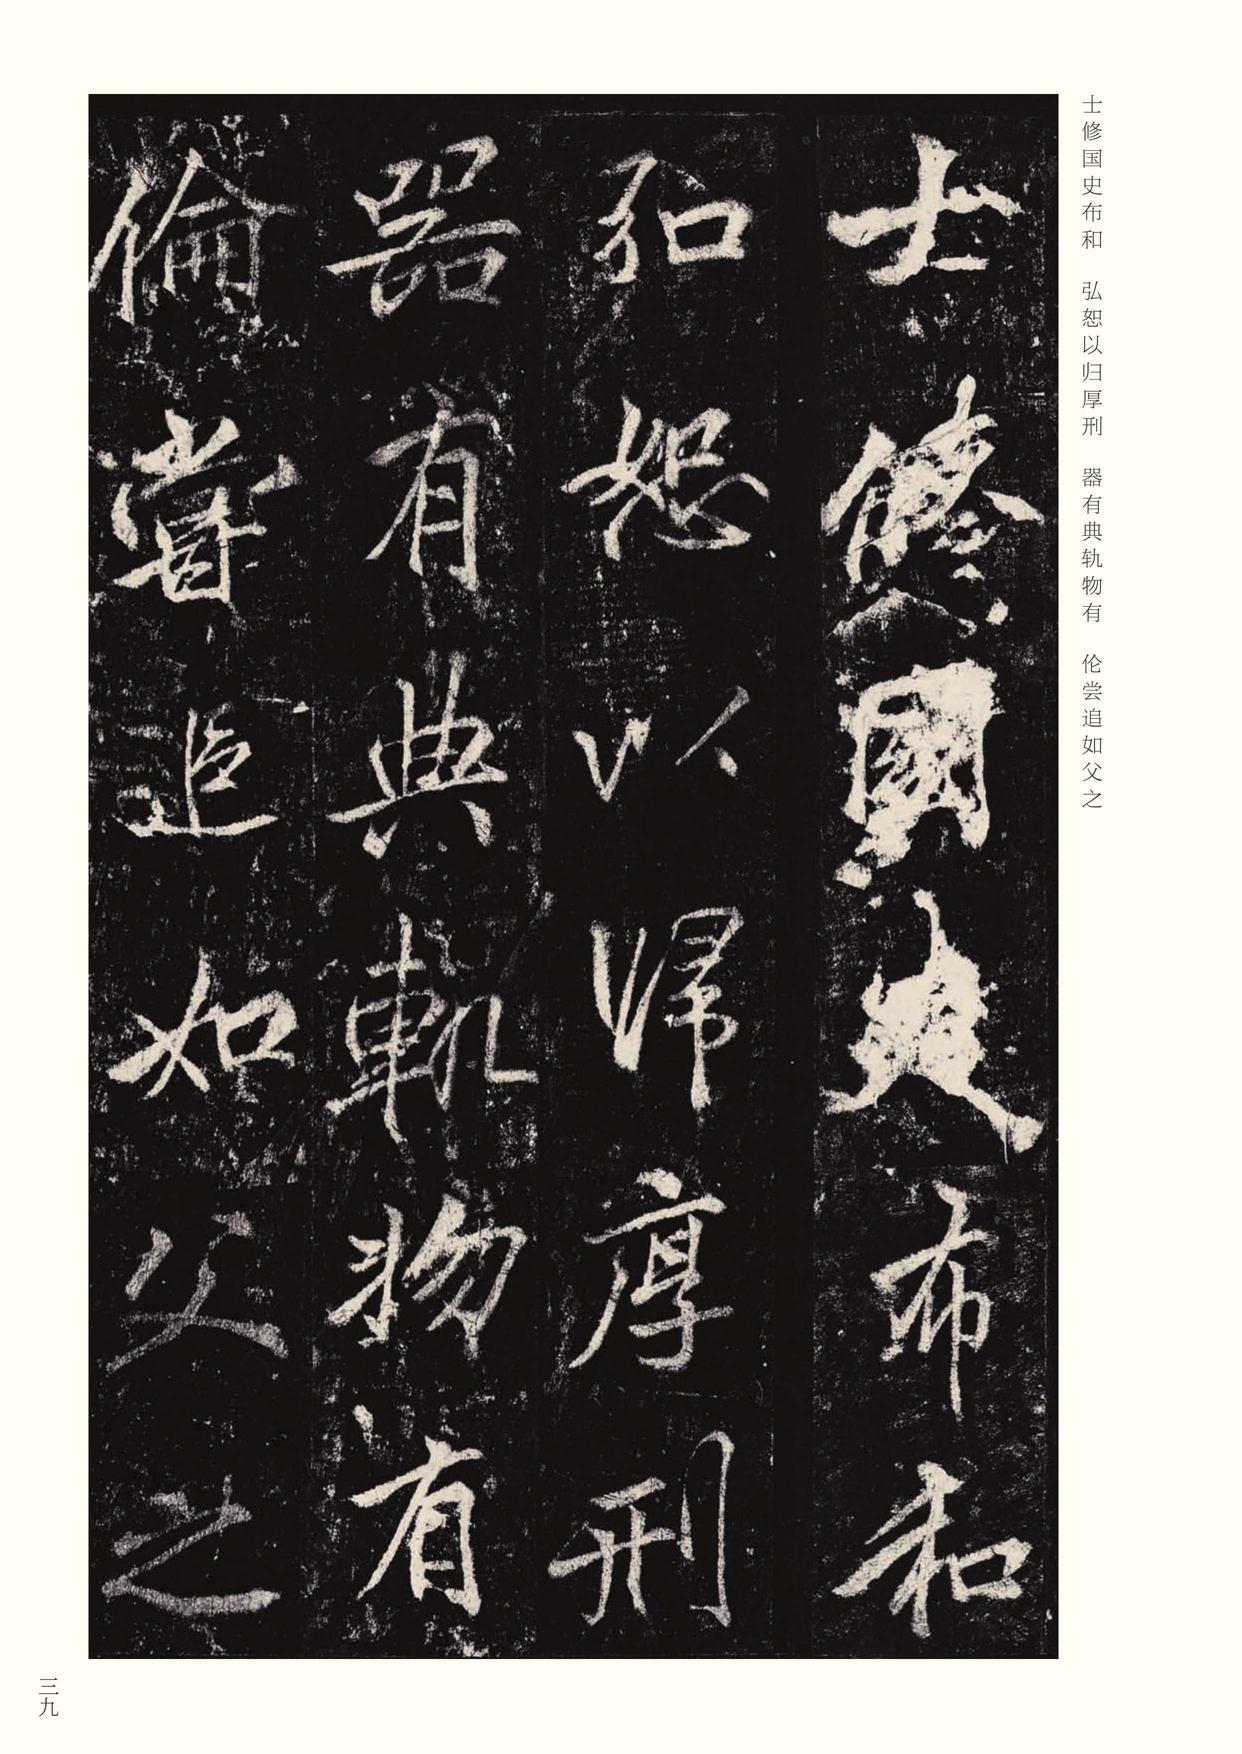 士修国史布和 弘恕以归厚刑 器有典轨物有 伦尝追如父之
士脩國史布和
弘恕以歸厚刑
器有典軌物有
倫嘗追如父之
三九